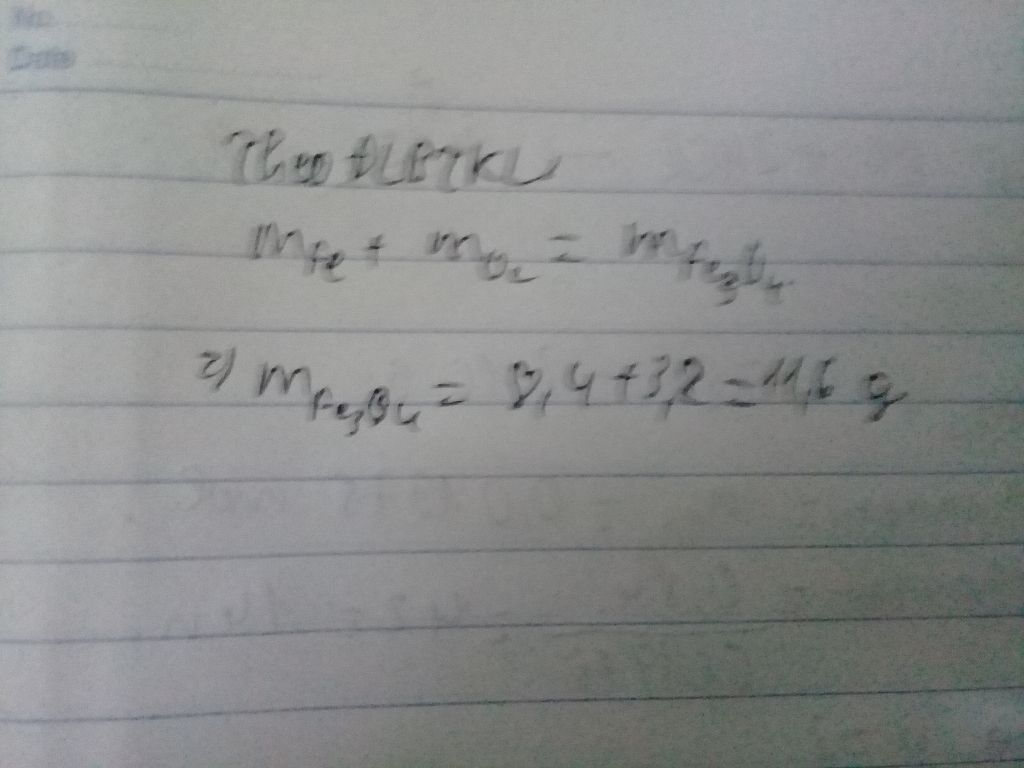 No.
Date
Theo ĐLBTKL
mFe + mO2 = mFe3O4
=) mFe3O4 = 8,4 + 3,2 = 11,6 g